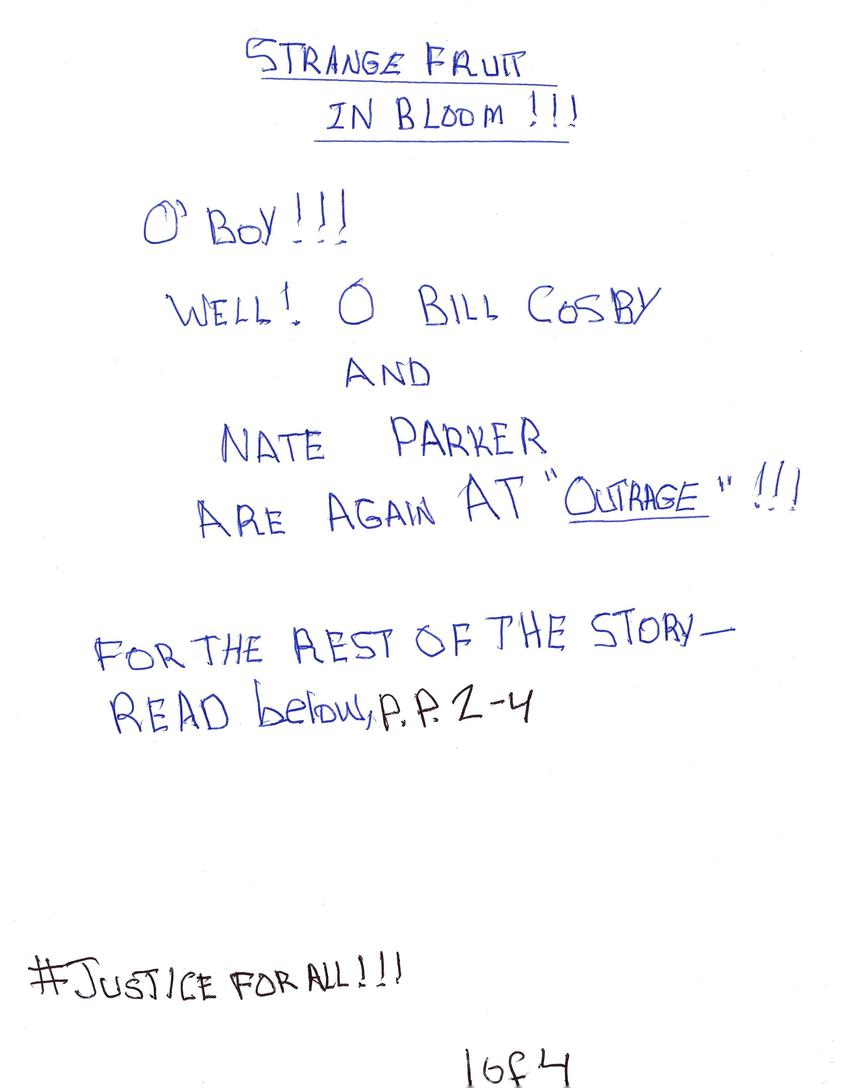 STRANGE FRUIT
IN BLOOM !!!
O' BOY !!!
WELL! O BILL COSBY
AND
NATE PARKER
ARE AGAIN AT "OUTRAGE" !!!
FOR THE REST OF THE STORY—
READ below, P.P. 2-4
#JUSTICE FOR ALL!!!
1 of 4